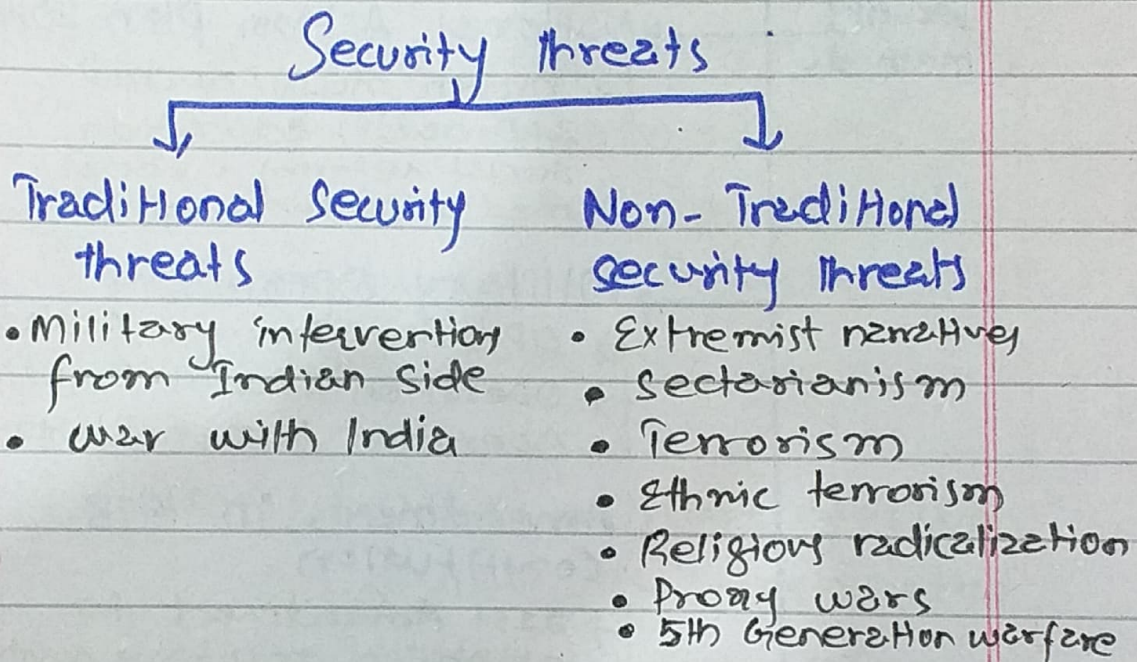 Security threats
Traditional Security
threats
• Military intervention
from Indian side
• war with India
Non-Traditional
security threats
• Extremist narratives
• Sectarianism
• Terrorism
• Ethnic terrorism
• Religious radicalization
• Proxy wars
• 5th Generation warfare